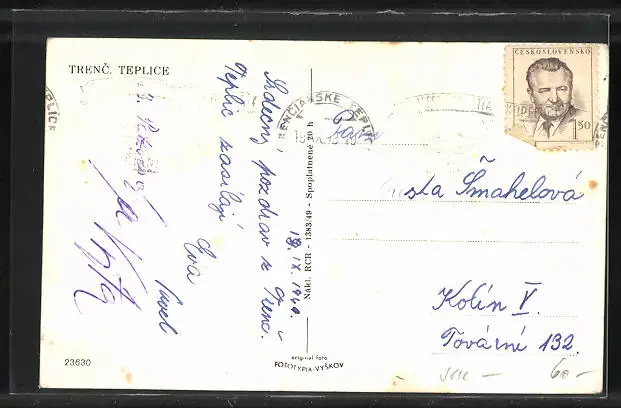 TRENČ. TEPLICE
Srdečný pozdrav z Trenč.
Teplic zasílají
Eva
Pavel
19.IX.1949.
Nákl. RCR - 1383/49 - Spoplatnené 20 h
original foto
FOTOTYPIA-VYŠKOV
23630
TRENČIANSKE TEPLICE
ČESKOSLOVENSKO
1.50
Šmahelová
Kolín V.
Tovární 132.
60-